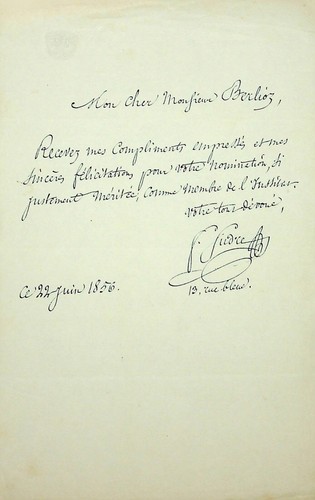 Mon cher Monsieur Berlioz,
Recevez mes compliments empressés et mes
sincères félicitations pour votre nomination, si
justement méritée, comme Membre de l'Institut.
votre tout dévoué,
ce 22 juin 1856.
13. rue bleue.